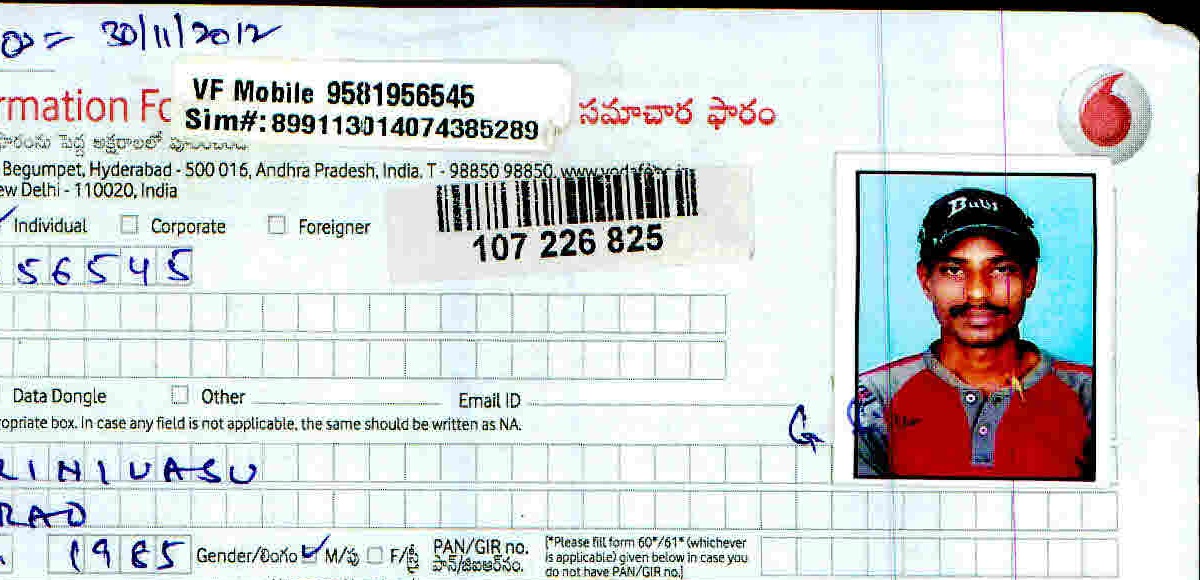 30/11/2012
rmation Fo
VF Mobile 9581956545
Sim#: 899113014074385289
సమాచార ఫారం
ఫారంను పెద్ద అక్షరాలలో పూరించండి
Begumpet, Hyderabad - 500 016, Andhra Pradesh, India. T - 98850 98850, www.vodafone.in
ew Delhi - 110020, India
Individual Corporate Foreigner
107 226 825
56545
Bubi
Data Dongle Other Email ID
ropriate box. In case any field is not applicable, the same should be written as NA.
G
RINIVASU
RAO
1985 Gender/లింగం M/పు F/స్త్రీ PAN/GIR no.
పాన్/జిఐఆర్నం.
(*Please fill form 60*/61* (whichever
is applicable) given below in case you
do not have PAN/GIR no.)